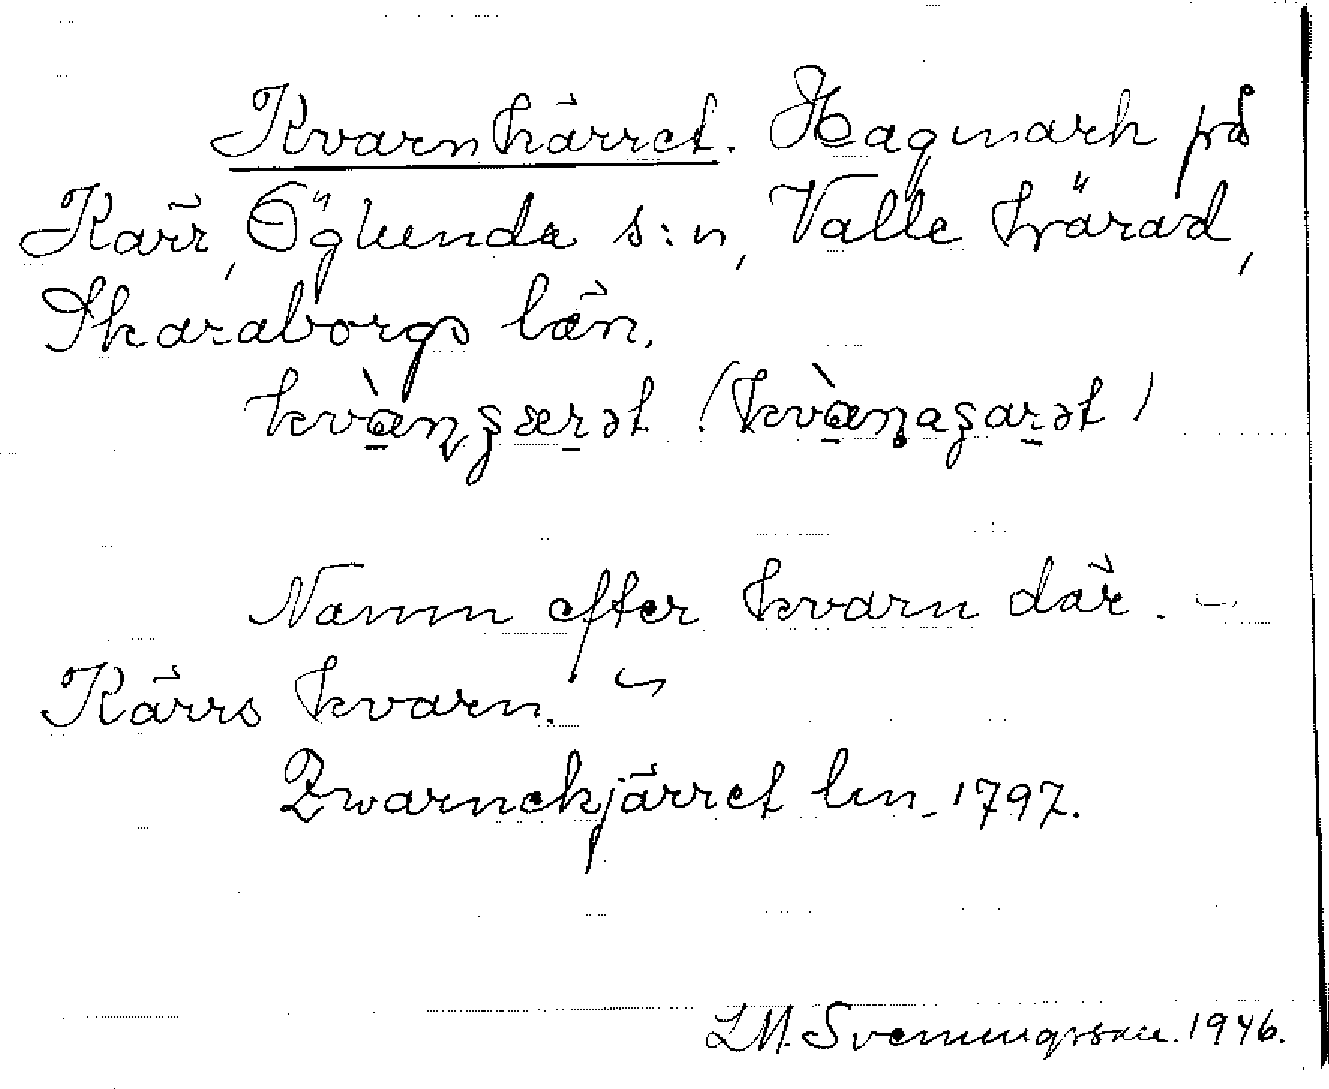 Kvarnkärret. Hagmark på
Kärr, Öglunda s:n, Valle härad,
Skaraborgs län.
kvàn̥ʂærət (kvàn̥aʂarət)
Namn efter kvarn där. –
Kärrs kvarn.
Qvarnekjärret lm. 1797.
LM. Svenungsson. 1946.